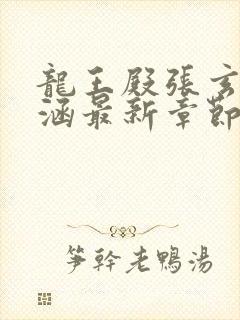 龍王殿張玄
涵最新章節
笋幹老鴨湯